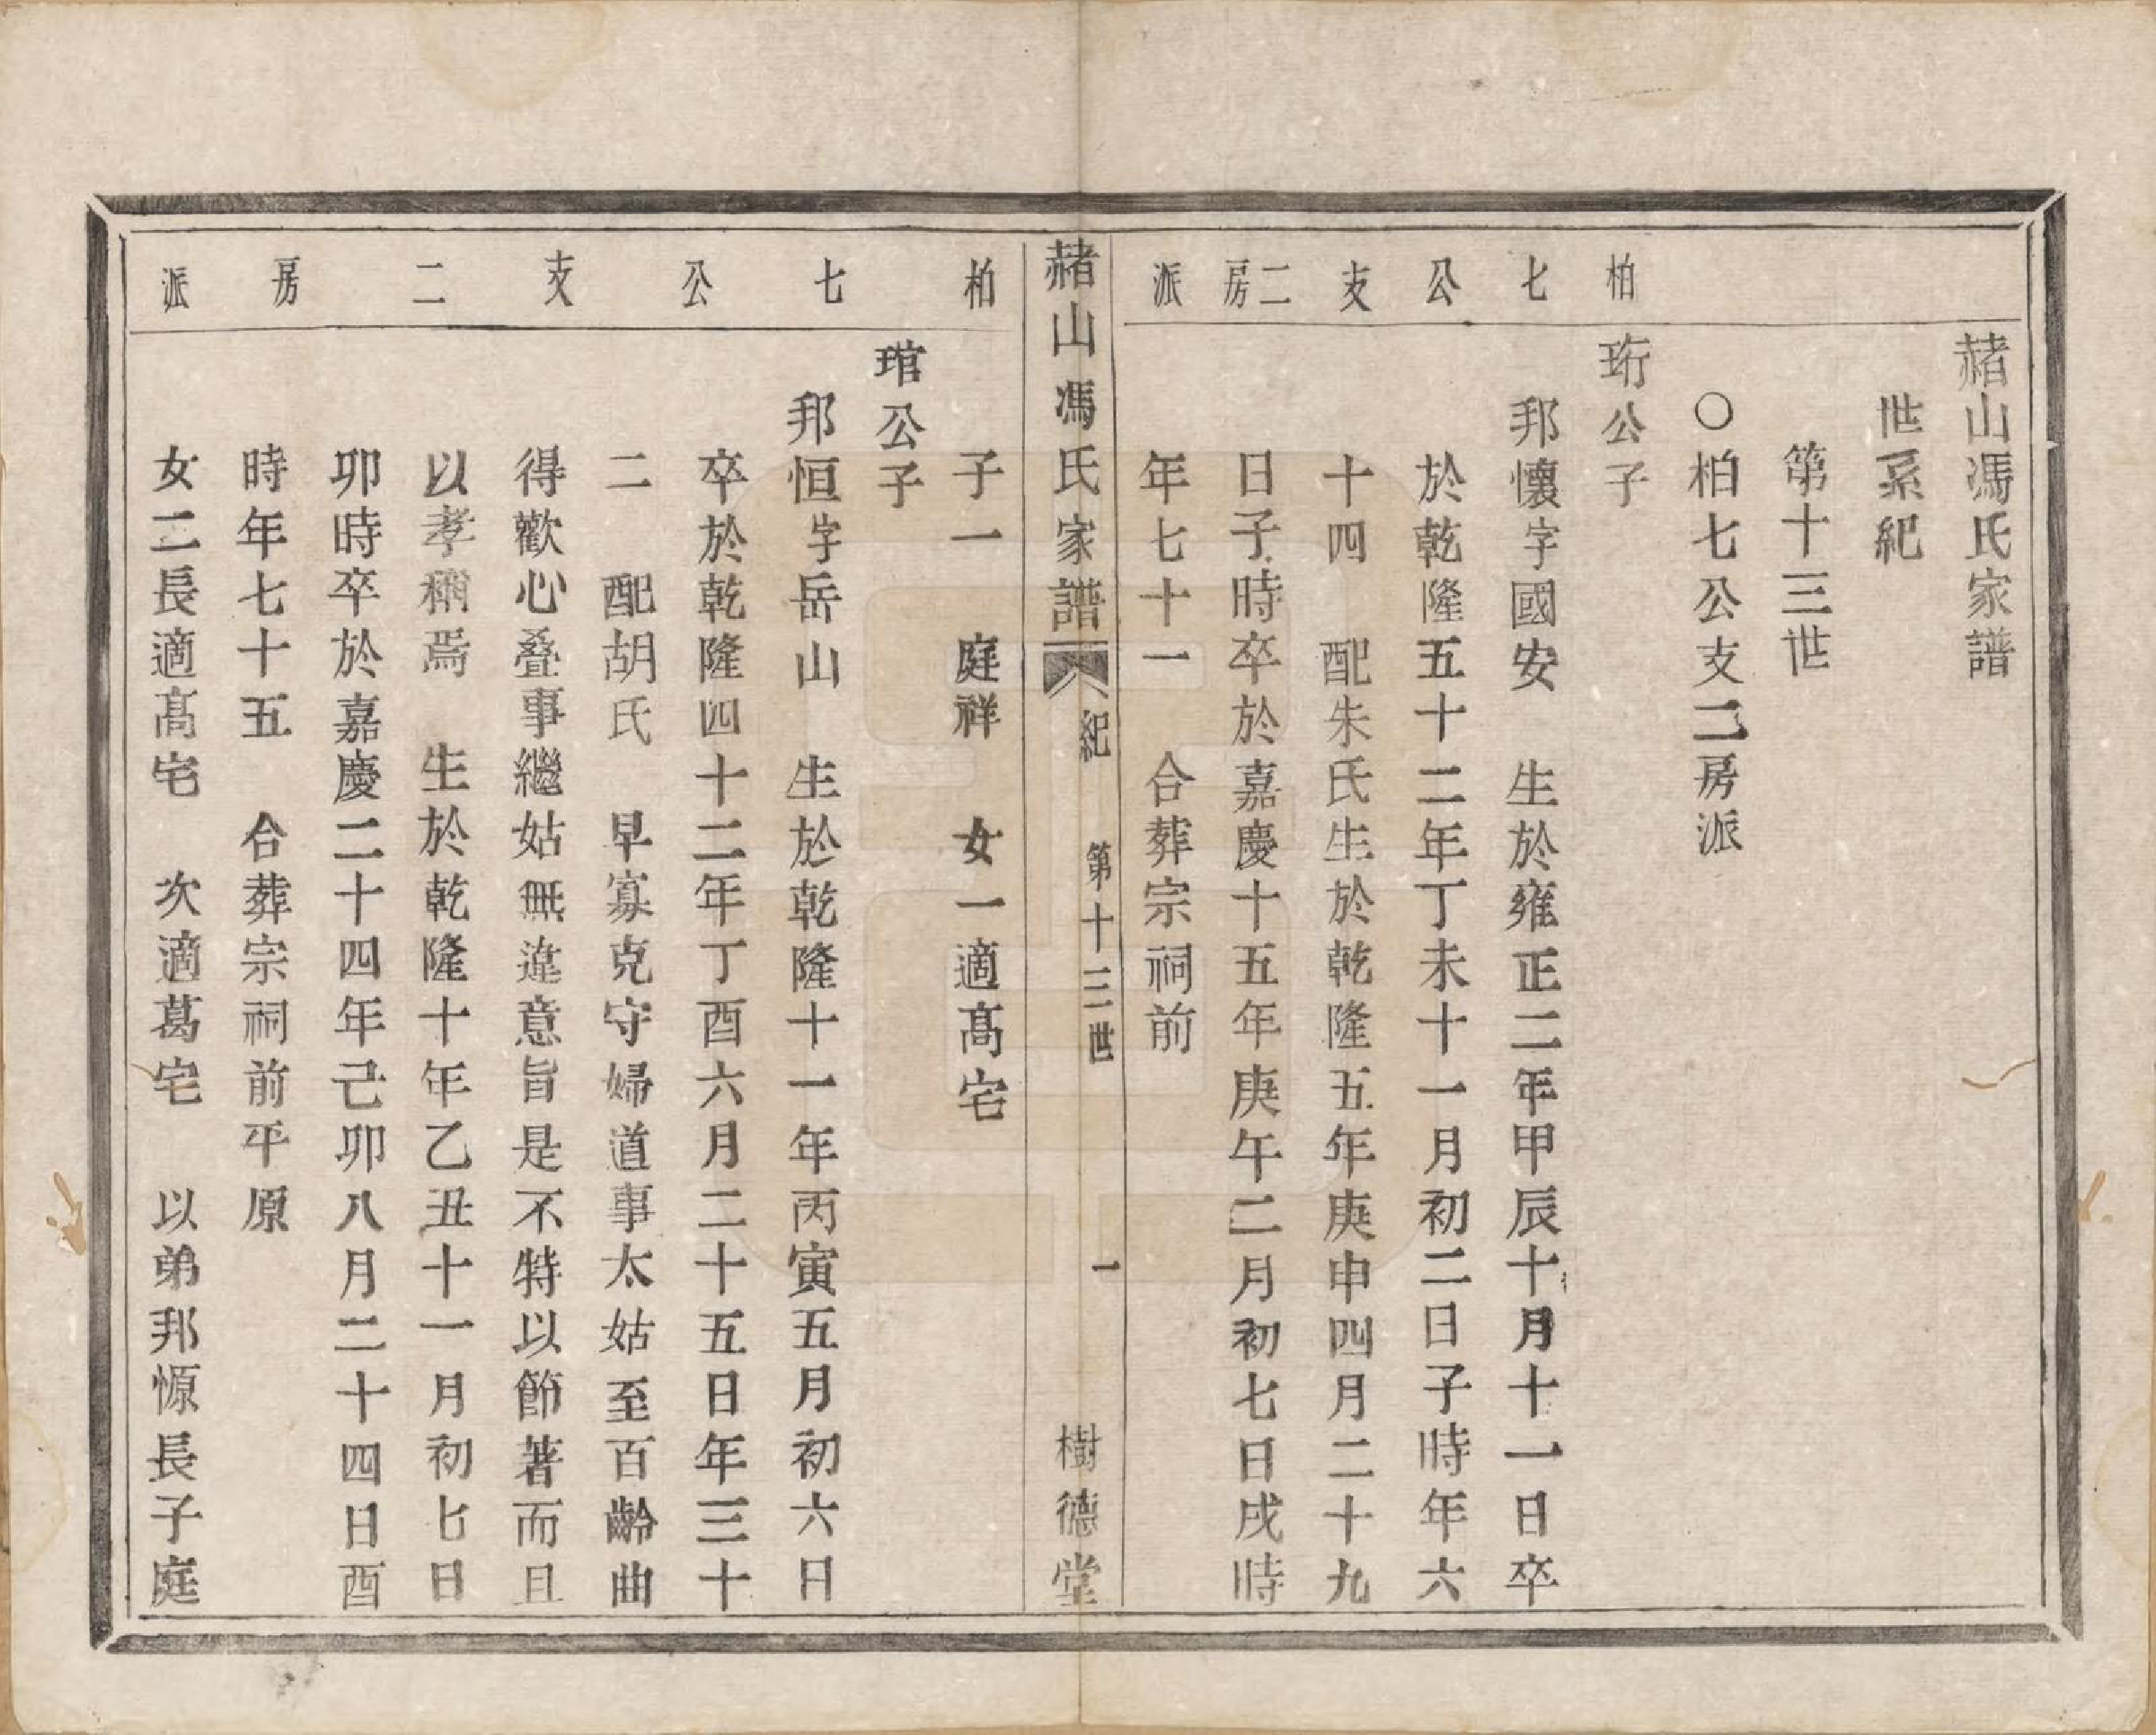 赭山馮氏家譜
世系紀
第十三世
〇柏七公支二房派
柏七公支二房派
珩公子
邦懷字國安　生於雍正二年甲辰十月十一日卒
於乾隆五十二年丁未十一月初二日子時年六
十四　配朱氏生於乾隆五年庚申四月二十九
日子時卒於嘉慶十五年庚午二月初七日戌時
年七十一　合葬宗祠前
赭山馮氏家譜　紀　第十三世　一　樹德堂
柏七公支二房派
子一　庭祥　女一適髙宅
琯公子
邦恒字岳山　生於乾隆十一年丙寅五月初六日
卒於乾隆四十二年丁酉六月二十五日年三十
二　配胡氏　早寡克守婦道事太姑至百齡曲
得歡心叠事繼姑無違意旨是不特以節著而且
以孝稱焉　生於乾隆十年乙丑十一月初七日
卯時卒於嘉慶二十四年己卯八月二十四日酉
時年七十五　合葬宗祠前平原
女二長適髙宅　次適葛宅　以弟邦愿長子庭